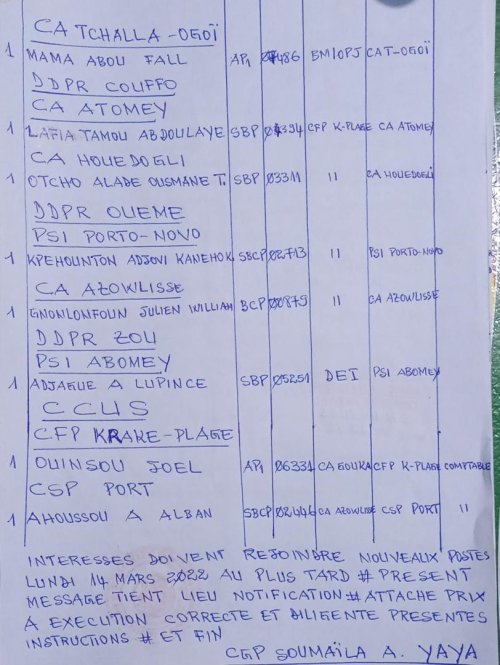 CA TCHALLA-OGOÏ
1 MAMA ABOU FALL AP1 07486 BM/OPJ CAT-OGOÏ
DDPR COUFFO
CA ATOMEY
1 LAFIA TAMOU ABDOULAYE SBP 04394 CFP K-PLAGE CA ATOMEY
CA HOUEDOGLI
1 OTCHO ALABE OUSMANE T. SBP 03311 11 CA HOUEDOGLI
DDPR OUEME
PSI PORTO-NOVO
1 KPEHOUNTON ADJOVI KANEHOK. SBCP 02713 11 PSI PORTO-NOVO
CA AZOWLISSE
1 GNONLONFOUN JULIEN WILLIAM BCP 00875 11 CA AZOWLISSE
DDPR ZOU
PSI ABOMEY
1 ADJAGUE A LUPINCE SBP 05251 DEI PSI ABOMEY
CCUS
CFP KRAKE-PLAGE
1 OUINSOU JOEL AP1 06331 CA GOUKA CFP K-PLAGE COMPTABLE
CSP PORT
1 AHOUSSOU A ALBAN SBCP 02446 CA AZOWLISSE CSP PORT 11
INTERESSES DOIVENT REJOINDRE NOUVEAUX POSTES
LUNDI 14 MARS 2022 AU PLUS TARD # PRESENT
MESSAGE TIENT LIEU NOTIFICATION # ATTACHE PRIX
A EXECUTION CORRECTE ET DILIGENTE PRESENTES
INSTRUCTIONS # ET FIN
CGP SOUMAÏLA A. YAYA